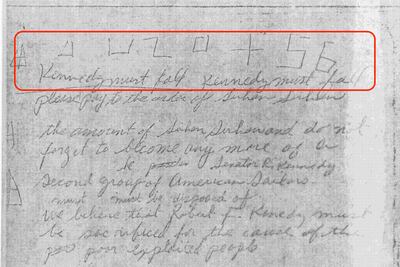 Kennedy must fall Kennedy must fall
please pay to the order of Sirhan Sirhan
the amount of Sirhan Sirhan and do not
forget to
any more of a
Senator R. Kennedy
Second group of American Sailors
must must be disposed of
We believe that Robert F. Kennedy must
be sacrificed for the cause of the
poor exploited people